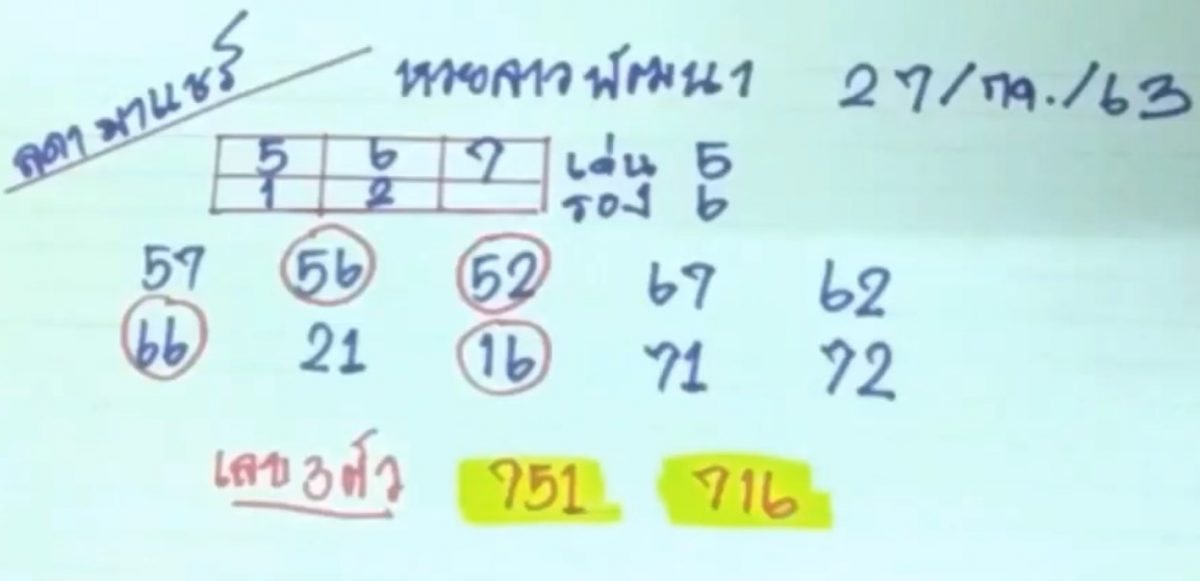 ลดา พาแชร์
หวยลาวพัฒนา 27/กค./63
5 6 7 เด่น 5
1 2 รอง 6
57 56 52 67 62
66 21 16 71 72
เลข 3 ตัว 751 716